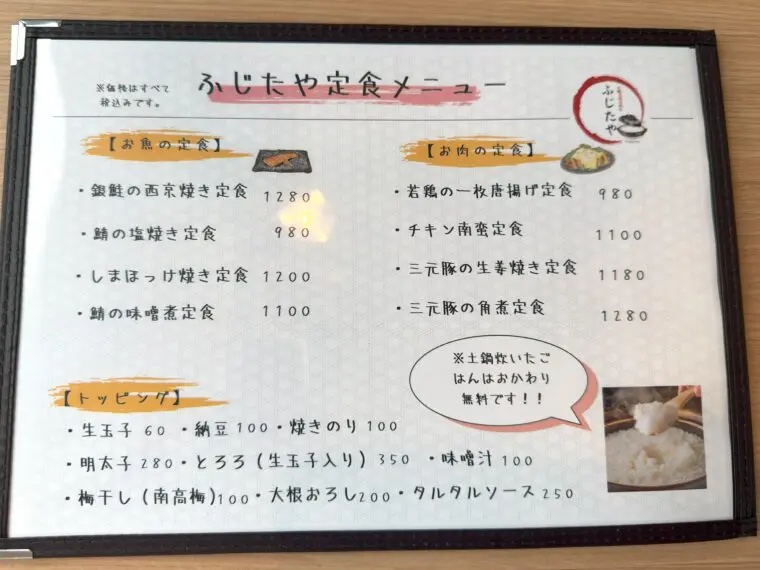 ※価格はすべて
税込みです。
ふじたや定食メニュー
ふじたや
【お魚の定食】
・銀鮭の西京焼き定食 1280
・鯖の塩焼き定食 980
・しまほっけ焼き定食 1200
・鯖の味噌煮定食 1100
【お肉の定食】
・若鶏の一枚唐揚げ定食 980
・チキン南蛮定食 1100
・三元豚の生姜焼き定食 1180
・三元豚の角煮定食 1280
※土鍋炊いたご
はんはおかわり
無料です！！
【トッピング】
・生玉子 60 ・納豆 100・焼きのり 100
・明太子 280・とろろ (生玉子入り) 350 ・味噌汁 100
・梅干し (南高梅)100・大根おろし200・タルタルソース 250